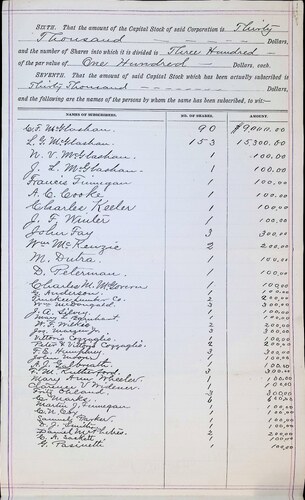 SIXTH. That the amount of the Capital Stock of said Corporation is Thirty
Thousand Dollars,
and the number of Shares into which it is divided is Three Hundred
of the par value of One Hundred Dollars, each.
SEVENTH. That the amount of said Capital Stock which has been actually subscribed is
Thirty Thousand Dollars,
and the following are the names of the persons by whom the same has been subscribed, to wit:
NAMES OF SUBSCRIBERS. NO. OF SHARES. AMOUNT.
C. F. McGlashan 90 $9000.00
L. G. McGlashan 153 15300.00
N. V. McGlashan 1 100.00
J. L. McGlashan 1 100.00
Francis Finnegan 1 100.00
A. C. Cooke 1 100.00
Charles Keeler 1 100.00
J. F. Winter 1 100.00
John Fay 3 300.00
Wm McKenzie 2 200.00
M. Dutra 1 100.00
D. Peterman 1 100.00
Charles M. McGovern 1 100.00
Anderson 1 100.00
Truckee Lumber Co. 2 200.00
Wm McDougald 3 300.00
J. A. Silory 1 100.00
Mary 1 100.00
W. F. Wilkie 2 200.00
Jr. 1 100.00
Vittorio Cozzaglio 1 100.00
Vittorio Cozzaglio 1 100.00
F. E. Humphry 3 300.00
John 1 100.00
1 100.00
Rutherford 3 300.00
Mary Ann Wheeler 1 100.00
V. Widener 1 100.00
3 300.00
C. Marke
Martin J. Finnegan 1 100.00
C. N. 1 100.00
Samuel Parker 1 100.00
D. J. Smith 1 100.00
Daniel 2 200.00
C. A. Sackett 1 100.00
G. Pasinetti 1 100.00